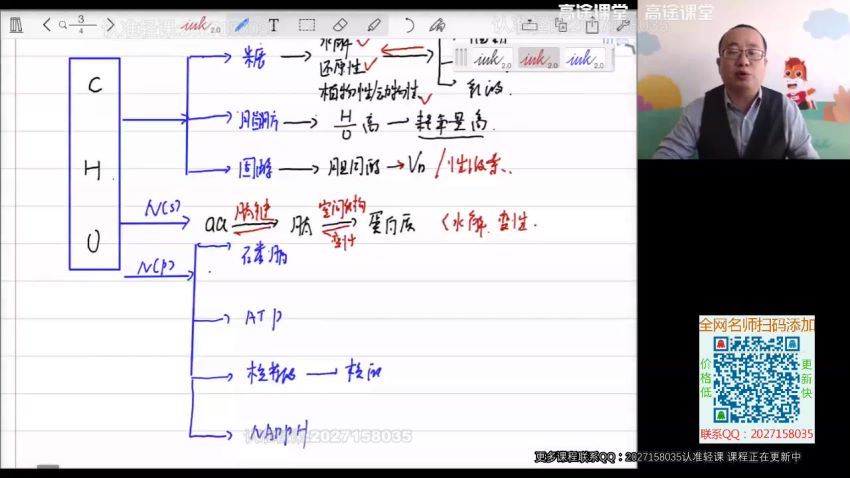 3
4
ink 2.0
高途课堂 高途课堂
ink 2.0 ink 2.0 ink 2.0
C
H
O
糖
水解
还原性
植物性/动物性
脂肪
H/O高
耗氧量高
固醇
胆固醇
VD/性激素
N(s)
aa
肽键
肽
空间结构
变性
蛋白质
(水解 变性
N(P)
磷脂
ATP
核苷酸
核酸
NADPH
认准轻课2027158035
全网名师扫码添加
价格低
更新快
联系QQ：2027158035
更多课程联系QQ：2027158035认准轻课 课程正在更新中